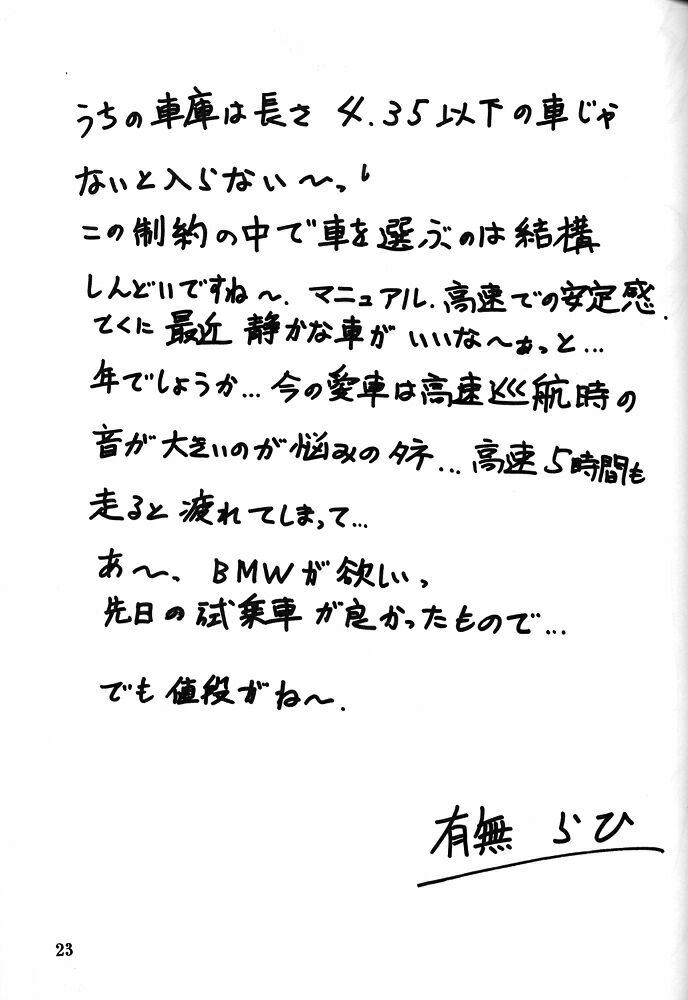 うちの車庫は長さ 4.35以下の車じゃ
ないと入らない〜っ!
この制約の中で車を選ぶのは結構
しんどいですね〜. マニュアル. 高速での安定感.
てくに 最近 静かな車が いいな〜ぁっと...
年でしょうか... 今の愛車は高速巡航時の
音が大きいのが悩みのタネ... 高速5時間も
走ると疲れてしまって...
あ〜、BMWが欲しいっ
先日の試乗車が良かったもので...
でも値段がね〜.
有無 らひ
23